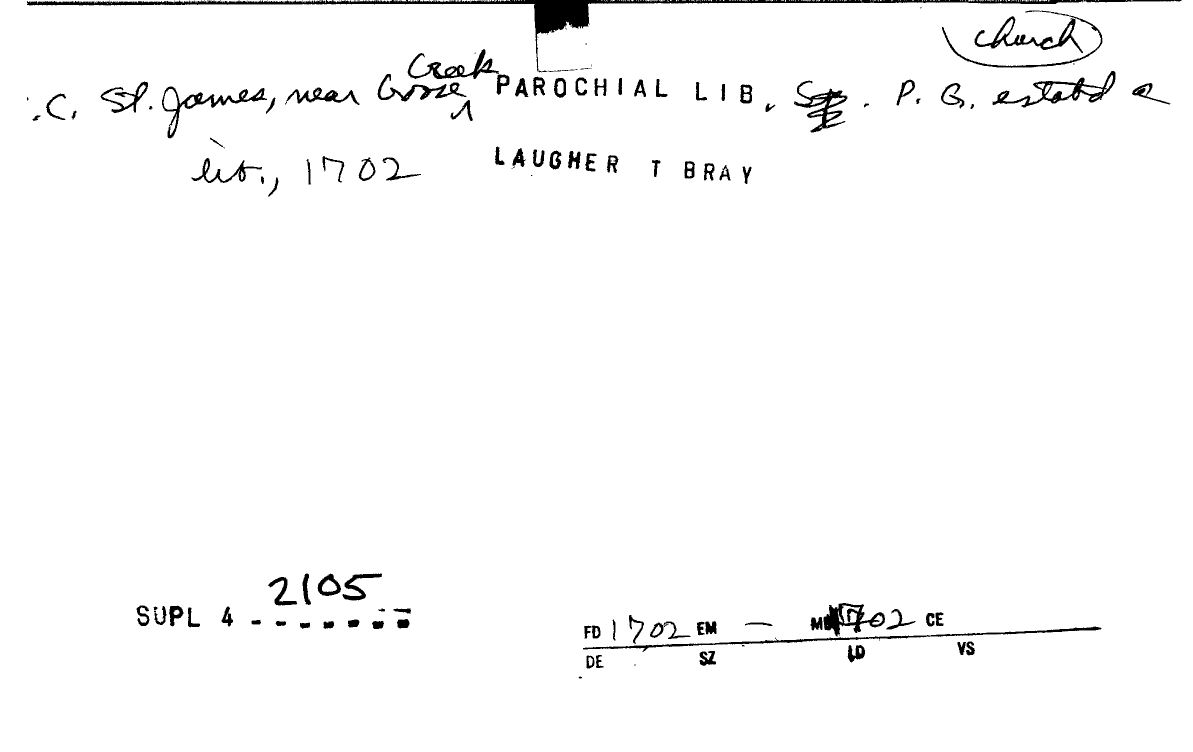 church
.C. St. James, near Goose Creek PAROCHIAL LIB. S. P. G. estabd a
lib., 1702 LAUGHER T BRAY
2105
SUPL 4 - - - - - - -
FD 1702 EM — MD 1702 CE
DE SZ LD VS